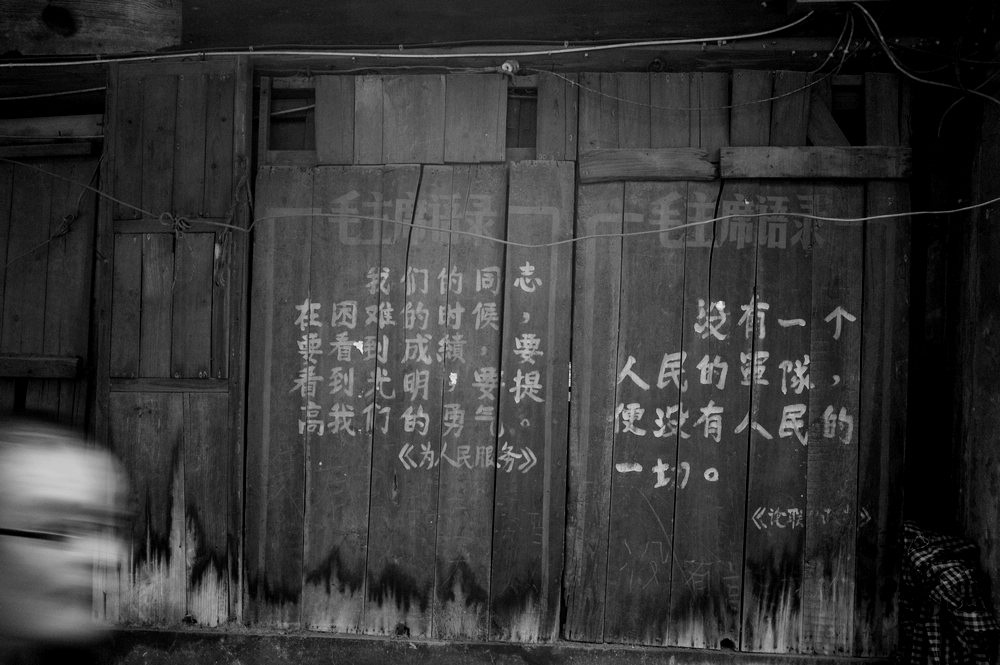 毛主席语录
我们的同志
在困难的时候，
要看到成績，要
看到光明，要提
高我们的勇气。
《为人民服务》
毛主席语录
没有一个
人民的軍隊，
便没有人民的
一切。
《论联